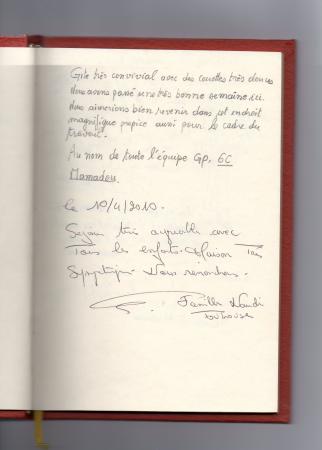 Gîte très convivial avec des couettes très douces
Nous avons passé une très bonne semaine ici.
Nous aimerions bien revenir dans cet endroit
magnifique propice aussi pour le cadre du
travail.
Au nom de toute l'équipe GP. 6C
Mamadou
le 19/4/2010.
Séjour très agréable avec
Tous les enfants. Maison Très
Sympathique. Nous reviendrons.
Famille
Toulouse